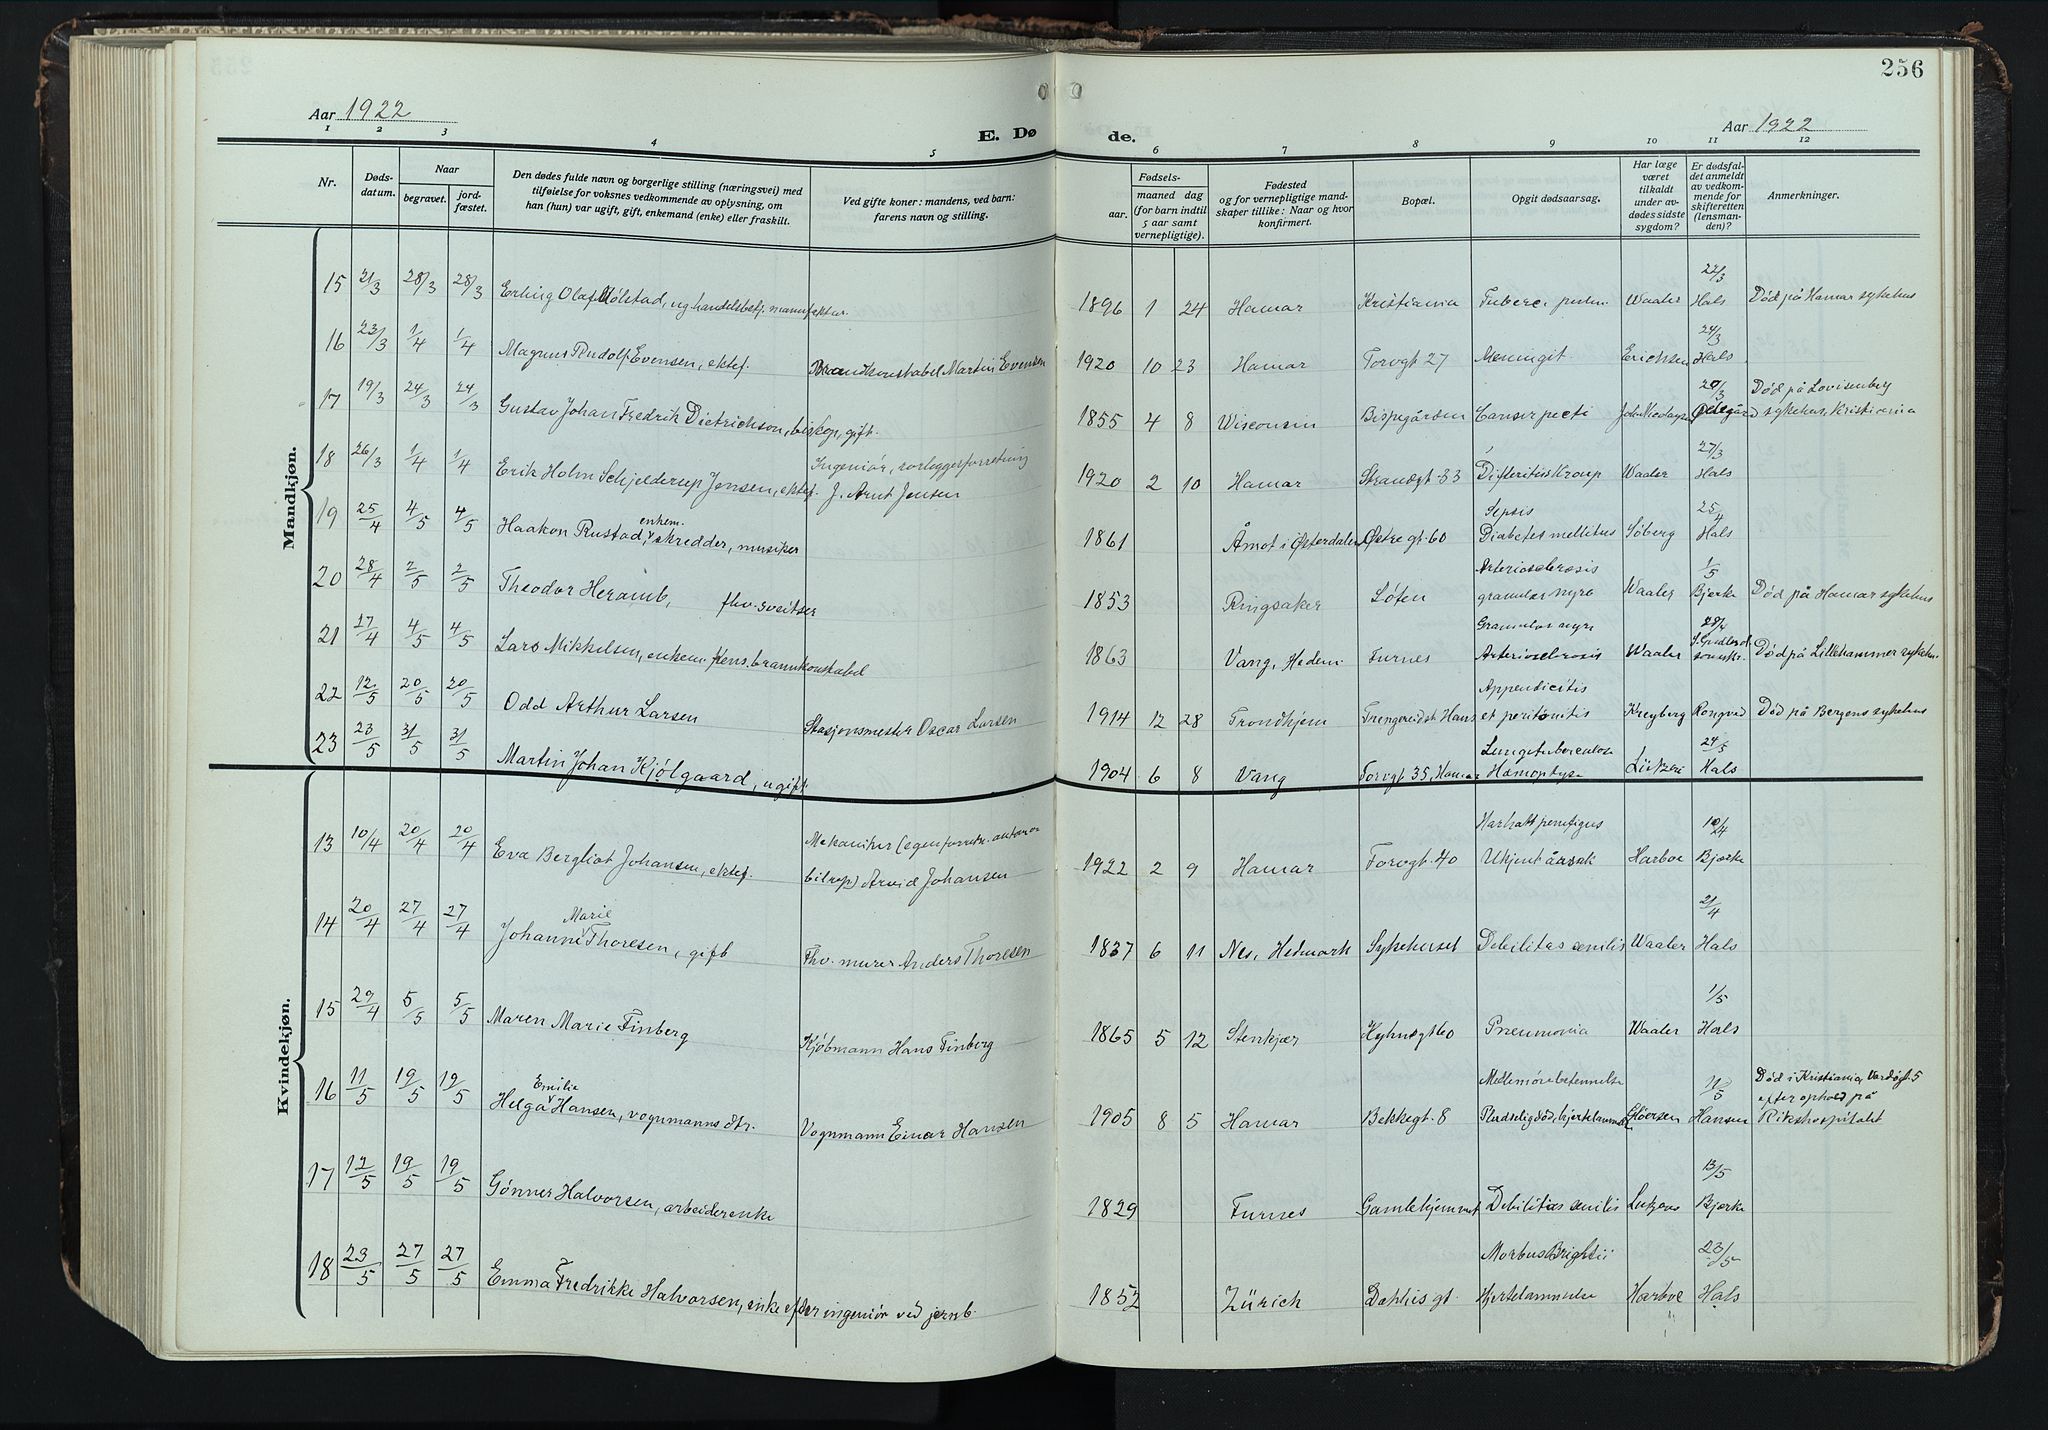 256
Aar 1922
E. Dø
de.
Aar 1922
1 2 3 4 5 6 7 8 9 10 11 12
Nr.
Døds-
datum.
Naar
begravet.
jord-
fæstet.
Den dødes fulde navn og borgerlige stilling (næringsvei) med
tilføielse for voksnes vedkommende av oplysning, om
han (hun) var ugift, gift, enkemand (enke) eller fraskilt.
Ved gifte koner: mandens, ved barn:
farens navn og stilling.
Fødsels-
aar.
maaned dag
(for barn indtil
5 aar samt
vernepligtige).
Fødested
og for vernepligtige mand-
skaper tillike: Naar og hvor
konfirmert.
Bopæl.
Opgit dødsaarsag.
Har læge
været
tilkaldt
under av-
dødes sidste
sygdom?
Er dødsfal-
det anmeldt
av vedkom-
mende for
skifteretten
(lensman-
den)?
Anmerkninger.
Mandkjøn.
22/3
15 21/3 28/3 28/3 Erling Olaf Mølstad, ug. handelsbetj. manufaktur. 1896 1 24 Hamar Kristiania Tuberc. pulm. Waaler Hals Død på Hamar sykehus
24/3
16 23/3 1/4 1/4 Magnus Rudolf Evensen, ektef. Brandkonstabel Martin Evensen 1920 10 23 Hamar Torvgt 27 Meningit. Erichsen Hals
20/3 Død på Lovisenberg
17 19/3 24/3 24/3 Gustav Johan Fredrik Dietrichson, biskop, gift. 1855 4 8 Wisconsin Bispegården Cancer recti sykehus, Kristiania
Ingeniør, rørleggerforretning 27/3
18 26/3 1/4 1/4 Erik Holm Schjelderup Jensen, ektef. J. Arnt Jensen 1920 2 10 Hamar Strandgt. 83 Difteritis Kroup Waaler Hals
enkem. Sepsis 25/4
19 25/4 4/5 4/5 Haakon Rustad, skredder, musiker 1861 Åmot i Østerdalen Østregt. 60 Diabetes mellitus Søberg Hals
Arteriosclerosis 1/5
20 28/4 2/5 2/5 Theodor Heramb, fhv. sveitser 1853 Ringsaker Løten granulær nyre Waaler Bjerke Død på Hamar sykehus
Granulær nyre 28/4
21 27/4 4/5 4/5 Lars Mikkelsen, enkem. pens. brannkonstabel 1863 Vang, Hedem. Furnes Arteriosclerosis Waaler Død på Lillehammer sykehus.
Appendicitis
22 12/5 20/5 20/5 Odd Arthur Larsen Stasjonsmester Oscar Larsen 1914 12 28 Trondhjem Trengereidst. Haus et peritonitis Kreyberg Rongved Død på Bergens sykehus
Lungetuberculose 24/5
23 23/5 31/5 31/5 Martin Johan Kjølgaard, ugift 1904 6 8 Vang Torvgt. 35, Hamar Hæmoptyse Lützen Hals
Kvindekjøn.
Mekaniker (egen forretn. autom 10/4
13 10/4 20/4 20/4 Eva Bergliot Johansen, ektef. bilrep) Arvid Johansen 1922 2 9 Hamar Torvgt. 40 Ukjent årsak Harboe Bjerke
Marie 21/4
14 20/4 27/4 27/4 Johanne Thoresen, gift Fhv. murer Anders Thoresen 1837 6 11 Nes, Hedmark Sykehuset Debilitas senilis Waaler Hals
1/5
15 29/4 5/5 5/5 Maren Marie Finberg Kjøbmann Hans Finberg 1865 5 12 Stenkjær Kyhnsgt 60 Pneumonia Waaler Hals
Emilie Mellemørebetennelse Død i Kristiania, Vardøgt. 5
efter ophold på
16 11/5 19/5 19/5 Helga Hansen, vognmanns dtr. Vognmann Einar Hansen 1905 8 5 Hamar Bekkegt. 8 Pludselig død, hjertelammelse Hansen Rikshospitalet
13/5
17 12/5 19/5 19/5 Gønner Halvorsen, arbeiderenke 1829 Furnes Gamlehjemmet Debilitas senilis Lutzens Bjerke
Morbus Brightii 23/5
18 23/5 27/5 27/5 Emma Fredrikke Halvorsen, enke efter ingeniør ved jernb. 1852 Zürich Dahlis gt. Hjertelammelse Harboe Hals